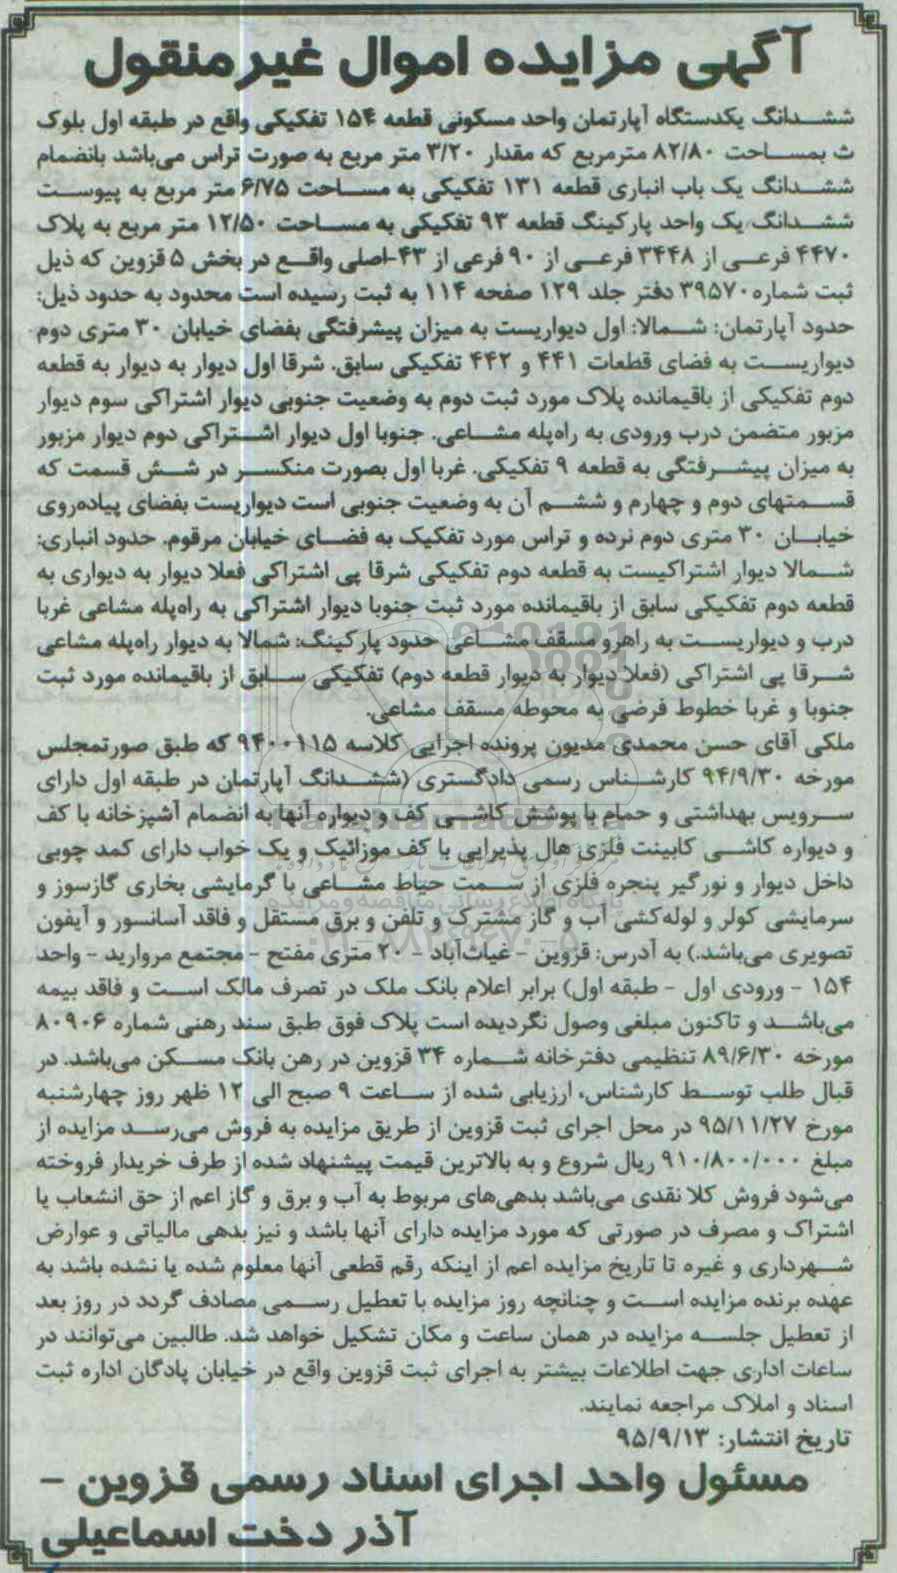 آگهی مزایده اموال غیرمنقول
ششدانگ یکدستگاه آپارتمان واحد مسکونی قطعه ۱۵۴ تفکیکی واقع در طبقه اول بلوک
ث بمساحت ۸۲/۸۰ مترمربع که مقدار ۳/۲۰ متر مربع به صورت تراس می‌باشد بانضمام
ششدانگ یک باب انباری قطعه ۱۳۱ تفکیکی به مساحت ۶/۷۵ متر مربع به پیوست
ششدانگ یک واحد پارکینگ قطعه ۹۳ تفکیکی به مساحت ۱۲/۵۰ متر مربع به پلاک
۴۴۷۰ فرعی از ۳۴۴۸ فرعی از ۹۰ فرعی از ۴۳-اصلی واقع در بخش ۵ قزوین که ذیل
ثبت شماره ۳۹۵۷۰ دفتر جلد ۱۲۹ صفحه ۱۱۴ به ثبت رسیده است محدود به حدود ذیل:
حدود آپارتمان: شمالا: اول دیواریست به میزان پیشرفتگی بفضای خیابان ۳۰ متری دوم
دیواریست به فضای قطعات ۴۴۱ و ۴۴۲ تفکیکی سابق. شرقا اول دیوار به دیوار به قطعه
دوم تفکیکی از باقیمانده پلاک مورد ثبت دوم به وضعیت جنوبی دیوار اشتراکی سوم دیوار
مزبور متضمن درب ورودی به راه‌پله مشاعی. جنوبا اول دیوار اشتراکی دوم دیوار مزبور
به میزان پیشرفتگی به قطعه ۹ تفکیکی. غربا اول بصورت منکسر در شش قسمت که
قسمتهای دوم و چهارم و ششم آن به وضعیت جنوبی است دیواریست بفضای پیاده‌روی
خیابان ۳۰ متری دوم نرده و تراس مورد تفکیک به فضای خیابان مرقوم. حدود انباری:
شمالا دیوار اشتراکیست به قطعه دوم تفکیکی شرقا پی اشتراکی فعلا دیوار به دیواری به
قطعه دوم تفکیکی سابق از باقیمانده مورد ثبت جنوبا دیوار اشتراکی به راه‌پله مشاعی غربا
درب و دیواریست به راهرو مسقف مشاعی حدود پارکینگ: شمالا به دیوار راه‌پله مشاعی
شرقا پی اشتراکی (فعلا دیوار به دیوار قطعه دوم) تفکیکی سابق از باقیمانده مورد ثبت
جنوبا و غربا خطوط فرضی به محوطه مسقف مشاعی.
ملکی آقای حسن محمدی مدیون پرونده اجرایی کلاسه ۹۴۰۰۱۱۵ که طبق صورتمجلس
مورخه ۹۴/۹/۳۰ کارشناس رسمی دادگستری (ششدانگ آپارتمان در طبقه اول دارای
سرویس بهداشتی و حمام با پوشش کاشی کف و دیواره آنها به انضمام آشپزخانه با کف
و دیواره کاشی کابینت فلزی هال پذیرایی با کف موزائیک و یک خواب دارای کمد چوبی
داخل دیوار و نورگیر پنجره فلزی از سمت حیاط مشاعی با گرمایشی بخاری گازسوز و
سرمایشی کولر و لوله‌کشی آب و گاز مشترک و تلفن و برق مستقل و فاقد آسانسور و آیفون
تصویری می‌باشد.) به آدرس: قزوین - غیاث‌آباد - ۲۰ متری مفتح - مجتمع مروارید - واحد
۱۵۴ - ورودی اول - طبقه اول) برابر اعلام بانک ملک در تصرف مالک است و فاقد بیمه
می‌باشد و تاکنون مبلغی وصول نگردیده است پلاک فوق طبق سند رهنی شماره ۸۰۹۰۶
مورخه ۸۹/۶/۳۰ تنظیمی دفترخانه شماره ۳۴ قزوین در رهن بانک مسکن می‌باشد. در
قبال طلب توسط کارشناس، ارزیابی شده از ساعت ۹ صبح الی ۱۲ ظهر روز چهارشنبه
مورخ ۹۵/۱۱/۲۷ در محل اجرای ثبت قزوین از طریق مزایده به فروش می‌رسد مزایده از
مبلغ ۹۱۰/۸۰۰/۰۰۰ ریال شروع و به بالاترین قیمت پیشنهاد شده از طرف خریدار فروخته
می‌شود فروش کلا نقدی می‌باشد بدهی‌های مربوط به آب و برق و گاز اعم از حق انشعاب یا
اشتراک و مصرف در صورتی که مورد مزایده دارای آنها باشد و نیز بدهی مالیاتی و عوارض
شهرداری و غیره تا تاریخ مزایده اعم از اینکه رقم قطعی آنها معلوم شده یا نشده باشد به
عهده برنده مزایده است و چنانچه روز مزایده با تعطیل رسمی مصادف گردد در روز بعد
از تعطیل جلسه مزایده در همان ساعت و مکان تشکیل خواهد شد. طالبین می‌توانند در
ساعات اداری جهت اطلاعات بیشتر به اجرای ثبت قزوین واقع در خیابان پادگان اداره ثبت
اسناد و املاک مراجعه نمایند.
تاریخ انتشار: ۹۵/۹/۱۳
مسئول واحد اجرای اسناد رسمی قزوین -
آذر دخت اسماعیلی